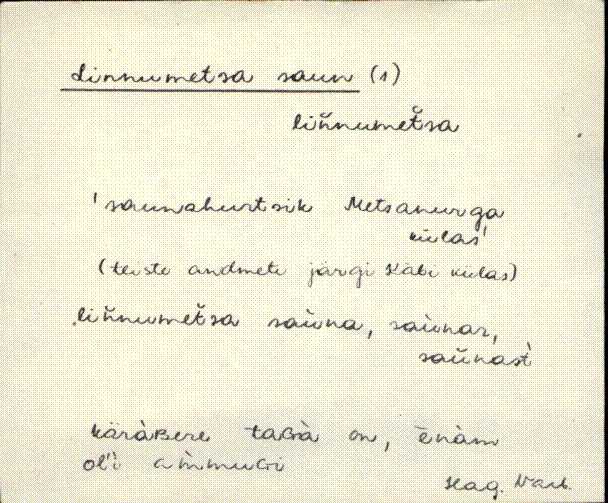 Linnumetsa saun (1)
liňnumeťsa
'saunahurtsik Metsanurga
külas'
(teiste andmete järgi Käbi külas)
liňnumeťsa saùna, saùnas,
saǔnast
käràʙere taɢà on, ēnàm
Hag.